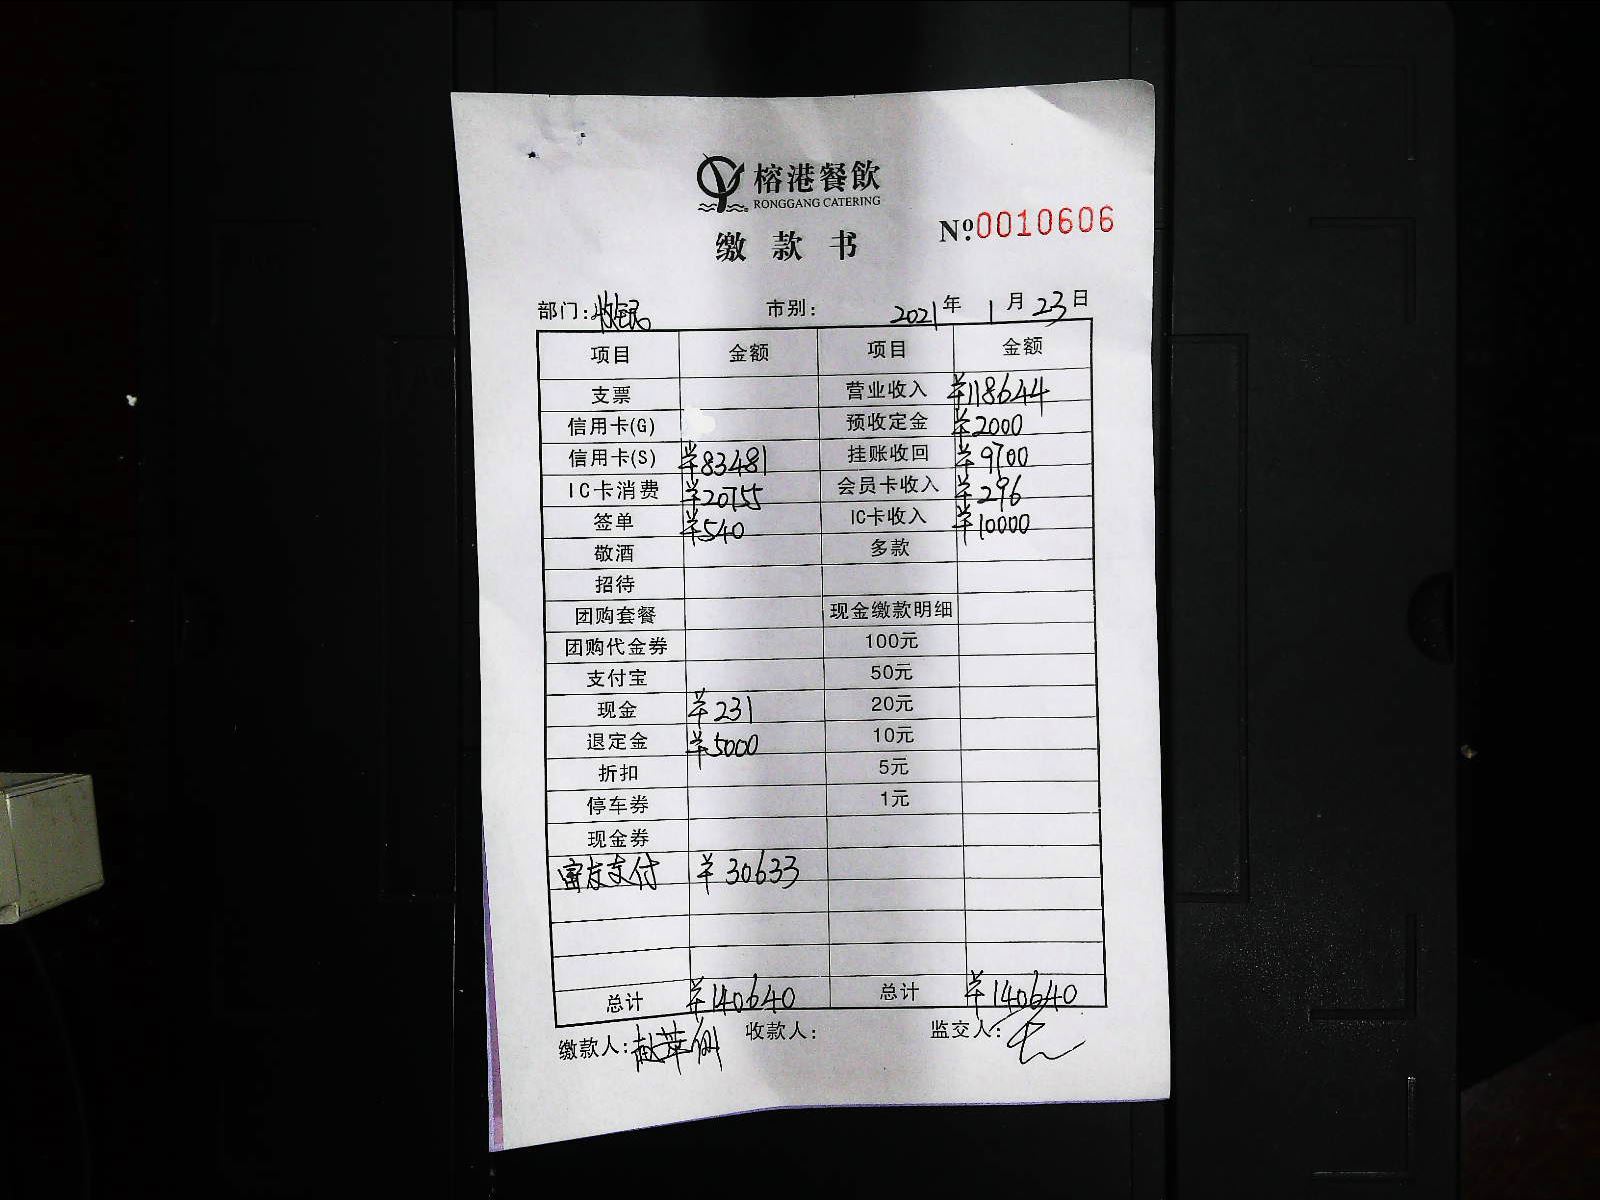 榕港餐飲
RONGGANG CATERING
缴款书
Nº:0010606
部门:收银 市别: 2021年1月23日
项目 金额 项目 金额
支票 营业收入 ¥118644
信用卡(G) 预收定金 ¥2000
信用卡(S) ¥83481 挂账收回 ¥9700
IC卡消费 ¥20755 会员卡收入 ¥296
签单 ¥540 IC卡收入 ¥10000
敬酒 多款
招待
团购套餐 现金缴款明细
团购代金券 100元
支付宝 50元
现金 ¥231 20元
退定金 ¥5000 10元
折扣 5元
停车券 1元
现金券
客友支付 ¥30633
总计 ¥140640 总计 ¥140640
缴款人: 收款人: 监交人: